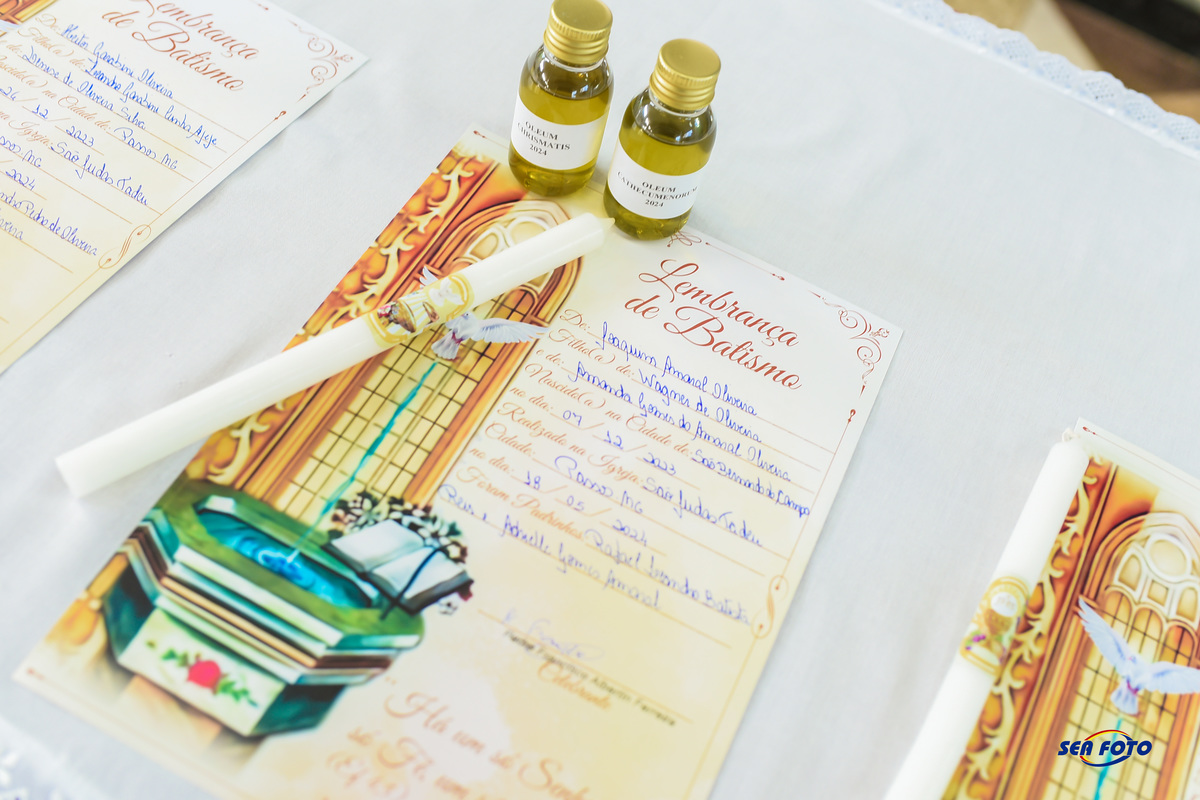 Lembrança
de Batismo
Oliveira
Filho(a) de:
Denise de Oliveira Silva
Nascido(a) na Cidade de: Passos MG
24 / 12 / 2023
Igreja: São Judas Tadeu
Passos MG
2024
de Oliveira
OLEUM
CHRISMATIS
2024
OLEUM
CATHECUMENORUM
2024
Lembrança
de Batismo
De: Joaquim Amaral Oliveira
Filho(a) de: Wagner de Oliveira
e de: Amanda Gomes do Amaral Oliveira
Nascido(a) na Cidade de: São Bernardo do Campo
no dia: 07 / 12 / 2023
Realizado na Igreja: São Judas Tadeu
Cidade: Passos MG
no dia: 18 / 05 / 2024
Foram Padrinhos: Rafael Leandro Batista
Reis e Gomes Amaral
Padre Francisco Ferreira
Celebrante
"Há um só
só Fé, um
(Ef
SEA FOTO